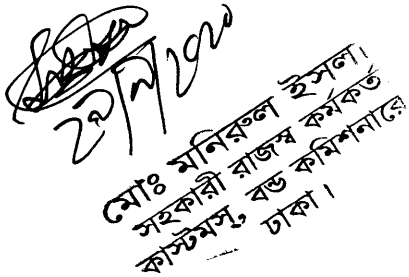 মোঃ মনিরুল ইসল।
সহকারী রাজস্ব কর্মকর্ত
কাস্টমস, বন্ড কমিশনারে
ঢাকা।